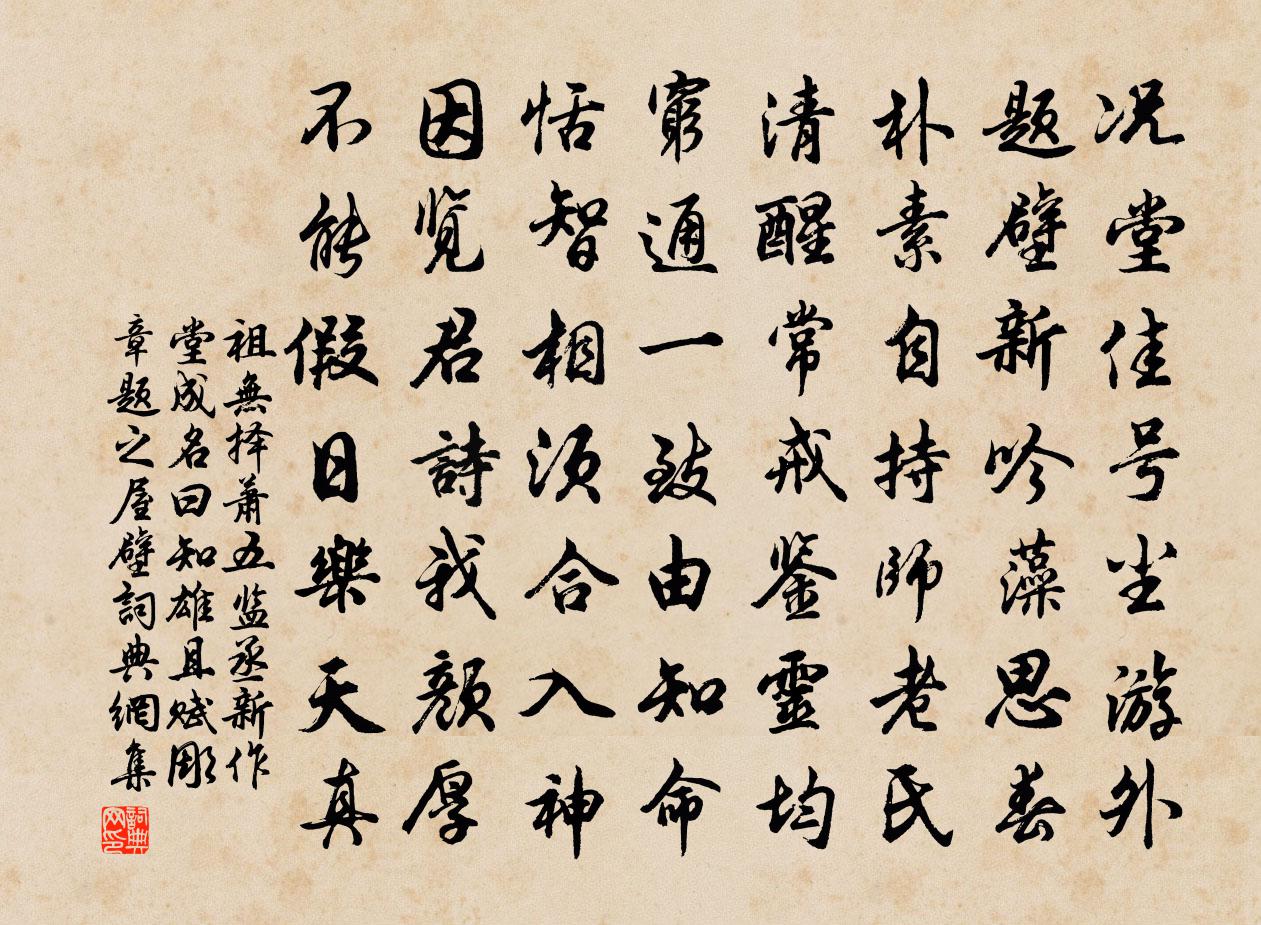 况堂佳号尘游外
题壁新吟藻思春
朴素自持師老氏
清醒常戒鉴靈均
窮通一致由知命
恬智相须合入神
因览君詩我颜厚
不能假日樂天真
祖無择萧五监丞新作
堂成名曰知雄且赋彫
章题之屋壁詞典網集
詞典网印